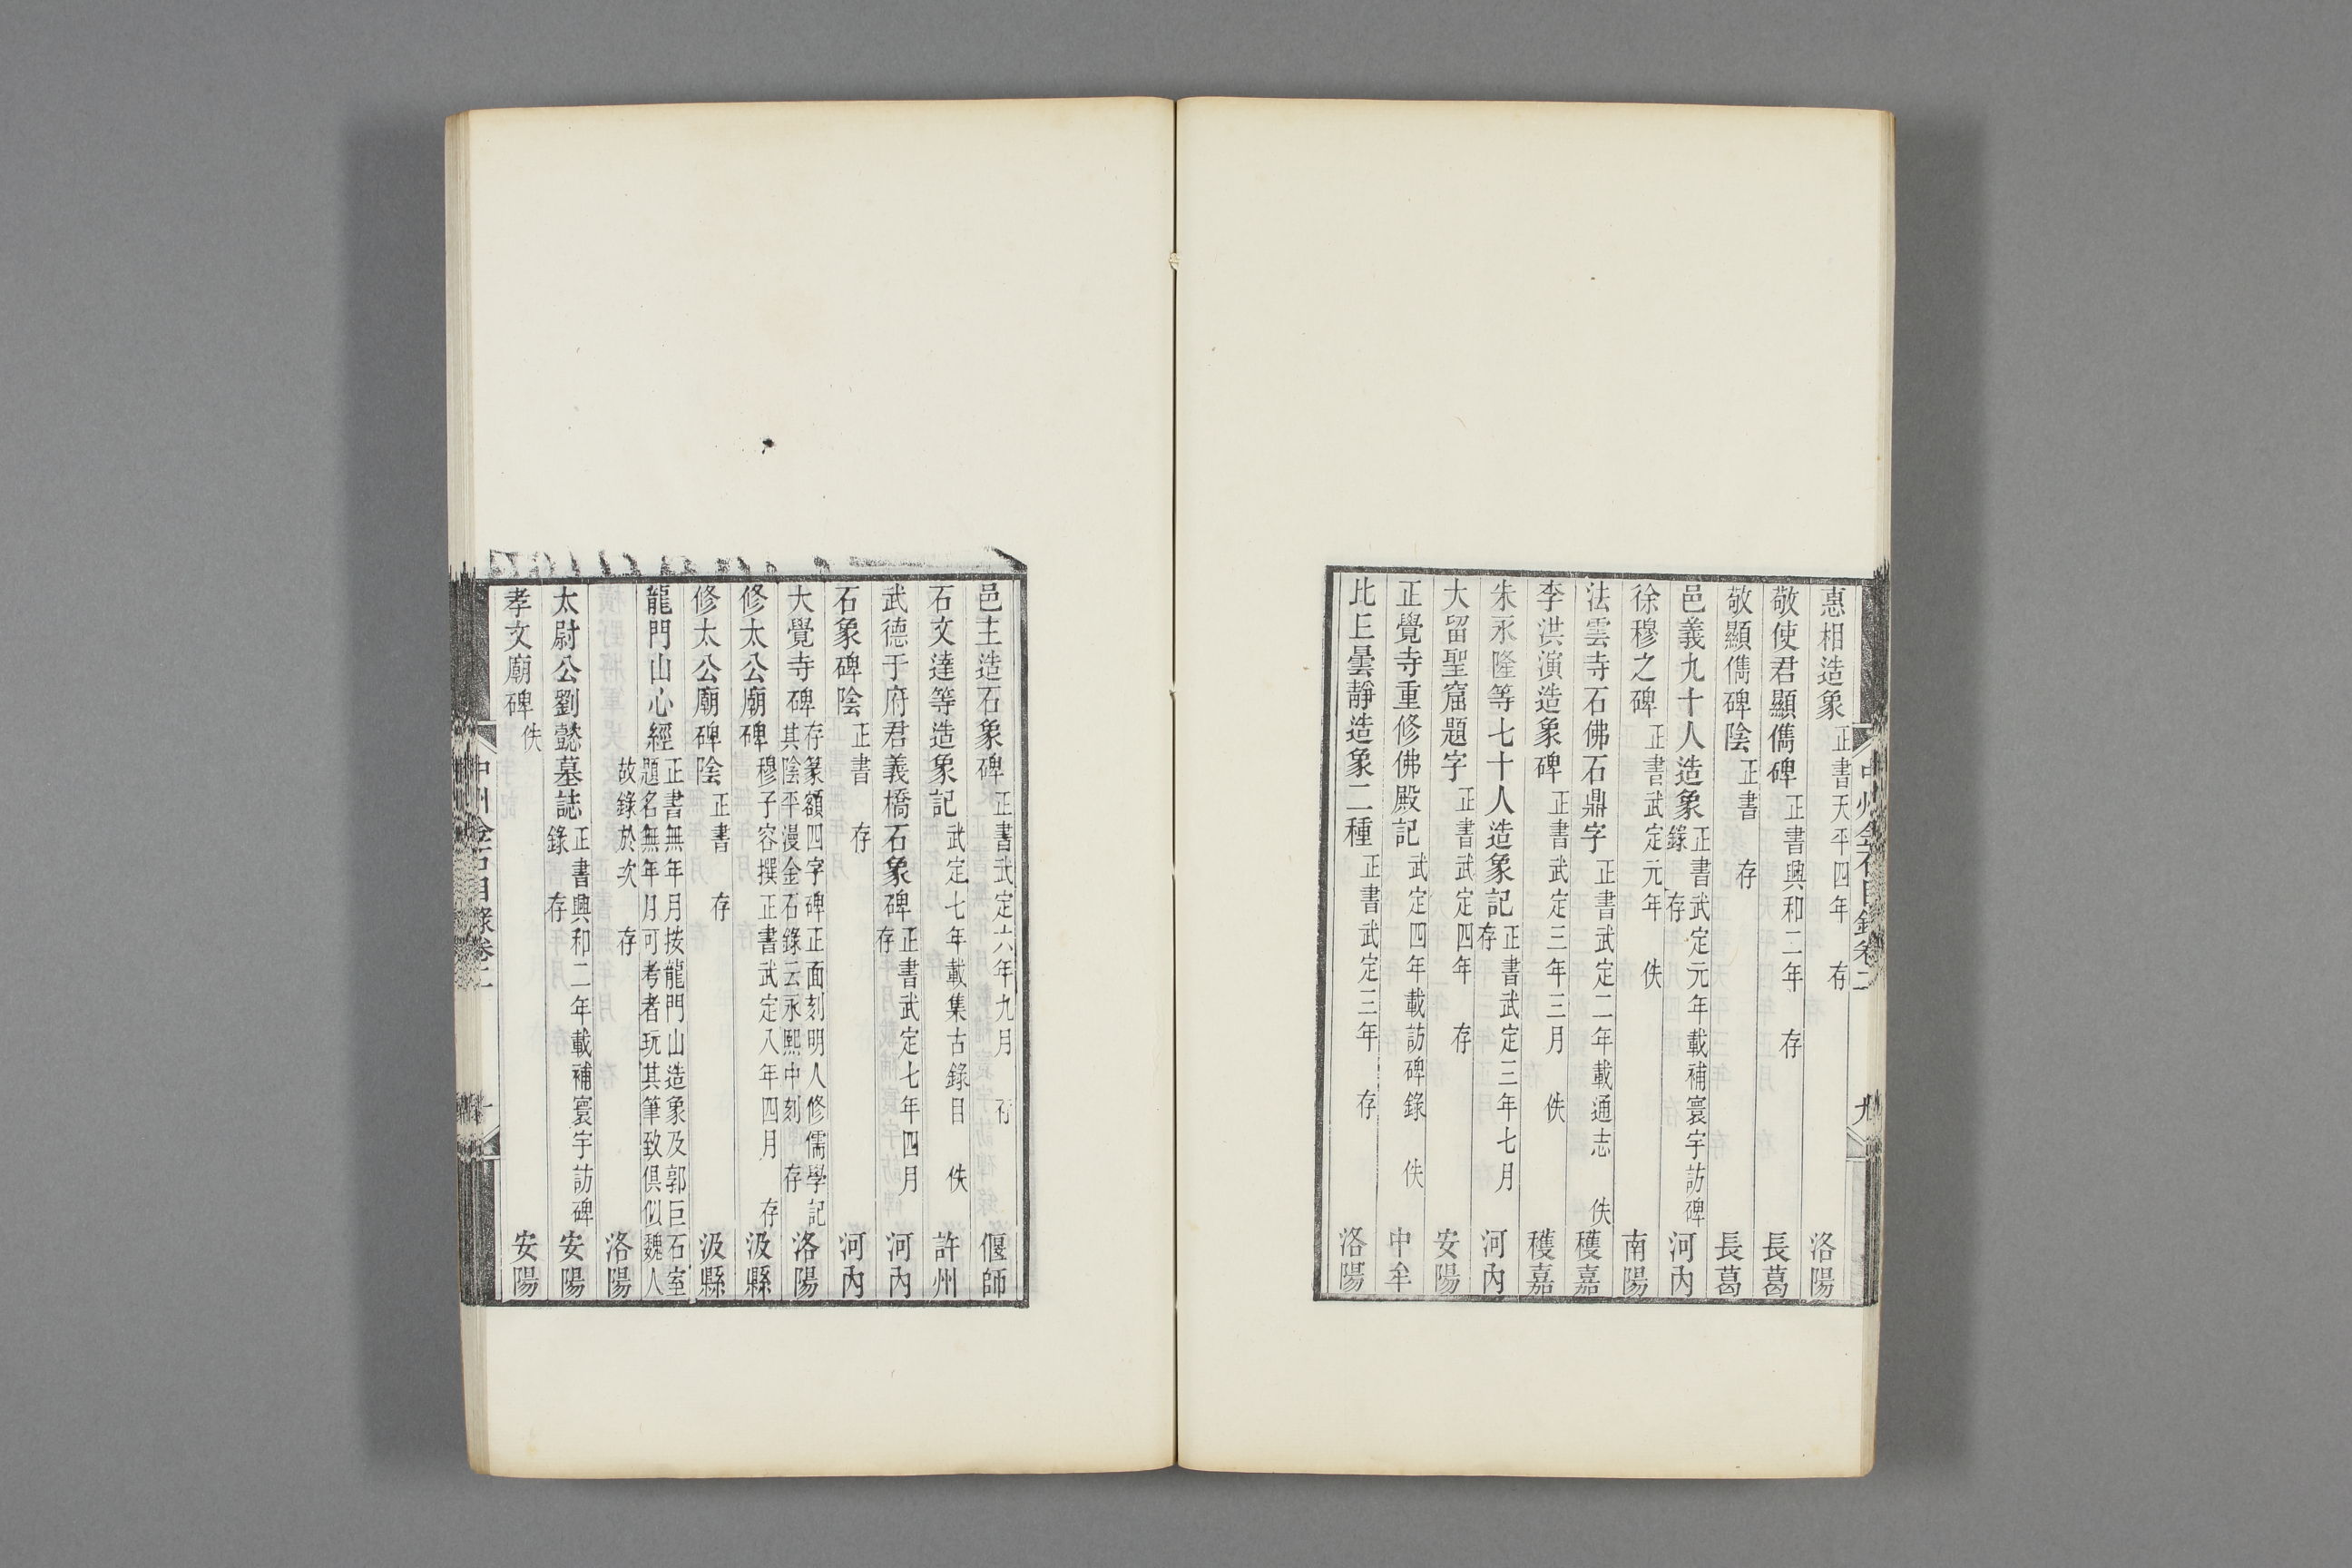 惠相造象 正書天平四年 存 洛陽
敬使君顯儁碑 正書興和二年 存 長葛
敬顯儁碑陰 正書 存 長葛
邑義九十人造象 正書武定元年載補寰宇訪碑錄 存 河內
徐穆之碑 正書武定元年 佚 南陽
法雲寺石佛石鼎字 正書武定二年載通志 佚 穫嘉
李洪演造象碑 正書武定三年三月 佚 穫嘉
朱永隆等七十人造象記 正書武定三年七月 存 河內
大留聖窟題字 正書武定四年 存 安陽
正覺寺重修佛殿記 武定四年載訪碑錄 佚 中牟
比丘曇靜造象二種 正書武定三年 存 洛陽
中州金石目錄卷二 九
邑主造石象碑 正書武定六年九月 存 偃師
石文達等造象記 武定七年載集古錄目 佚 許州
武德于府君義橋石象碑 正書武定七年四月 存 河內
石象碑陰 正書 存 河內
大覺寺碑 存篆額四字碑正面刻明人修儒學記其陰平漫金石錄云永熙中刻 存 洛陽
修太公廟碑 穆子容撰正書武定八年四月 存 汲縣
修太公廟碑陰 正書 存 汲縣
龍門山心經 正書無年月按龍門山造象及郭巨石室題名無年月可考者玩其筆致俱似魏人
故錄於次 存 洛陽
太尉公劉懿墓誌 正書興和二年載補寰宇訪碑錄 存 安陽
孝文廟碑 佚 安陽
中州金石目錄卷二 十